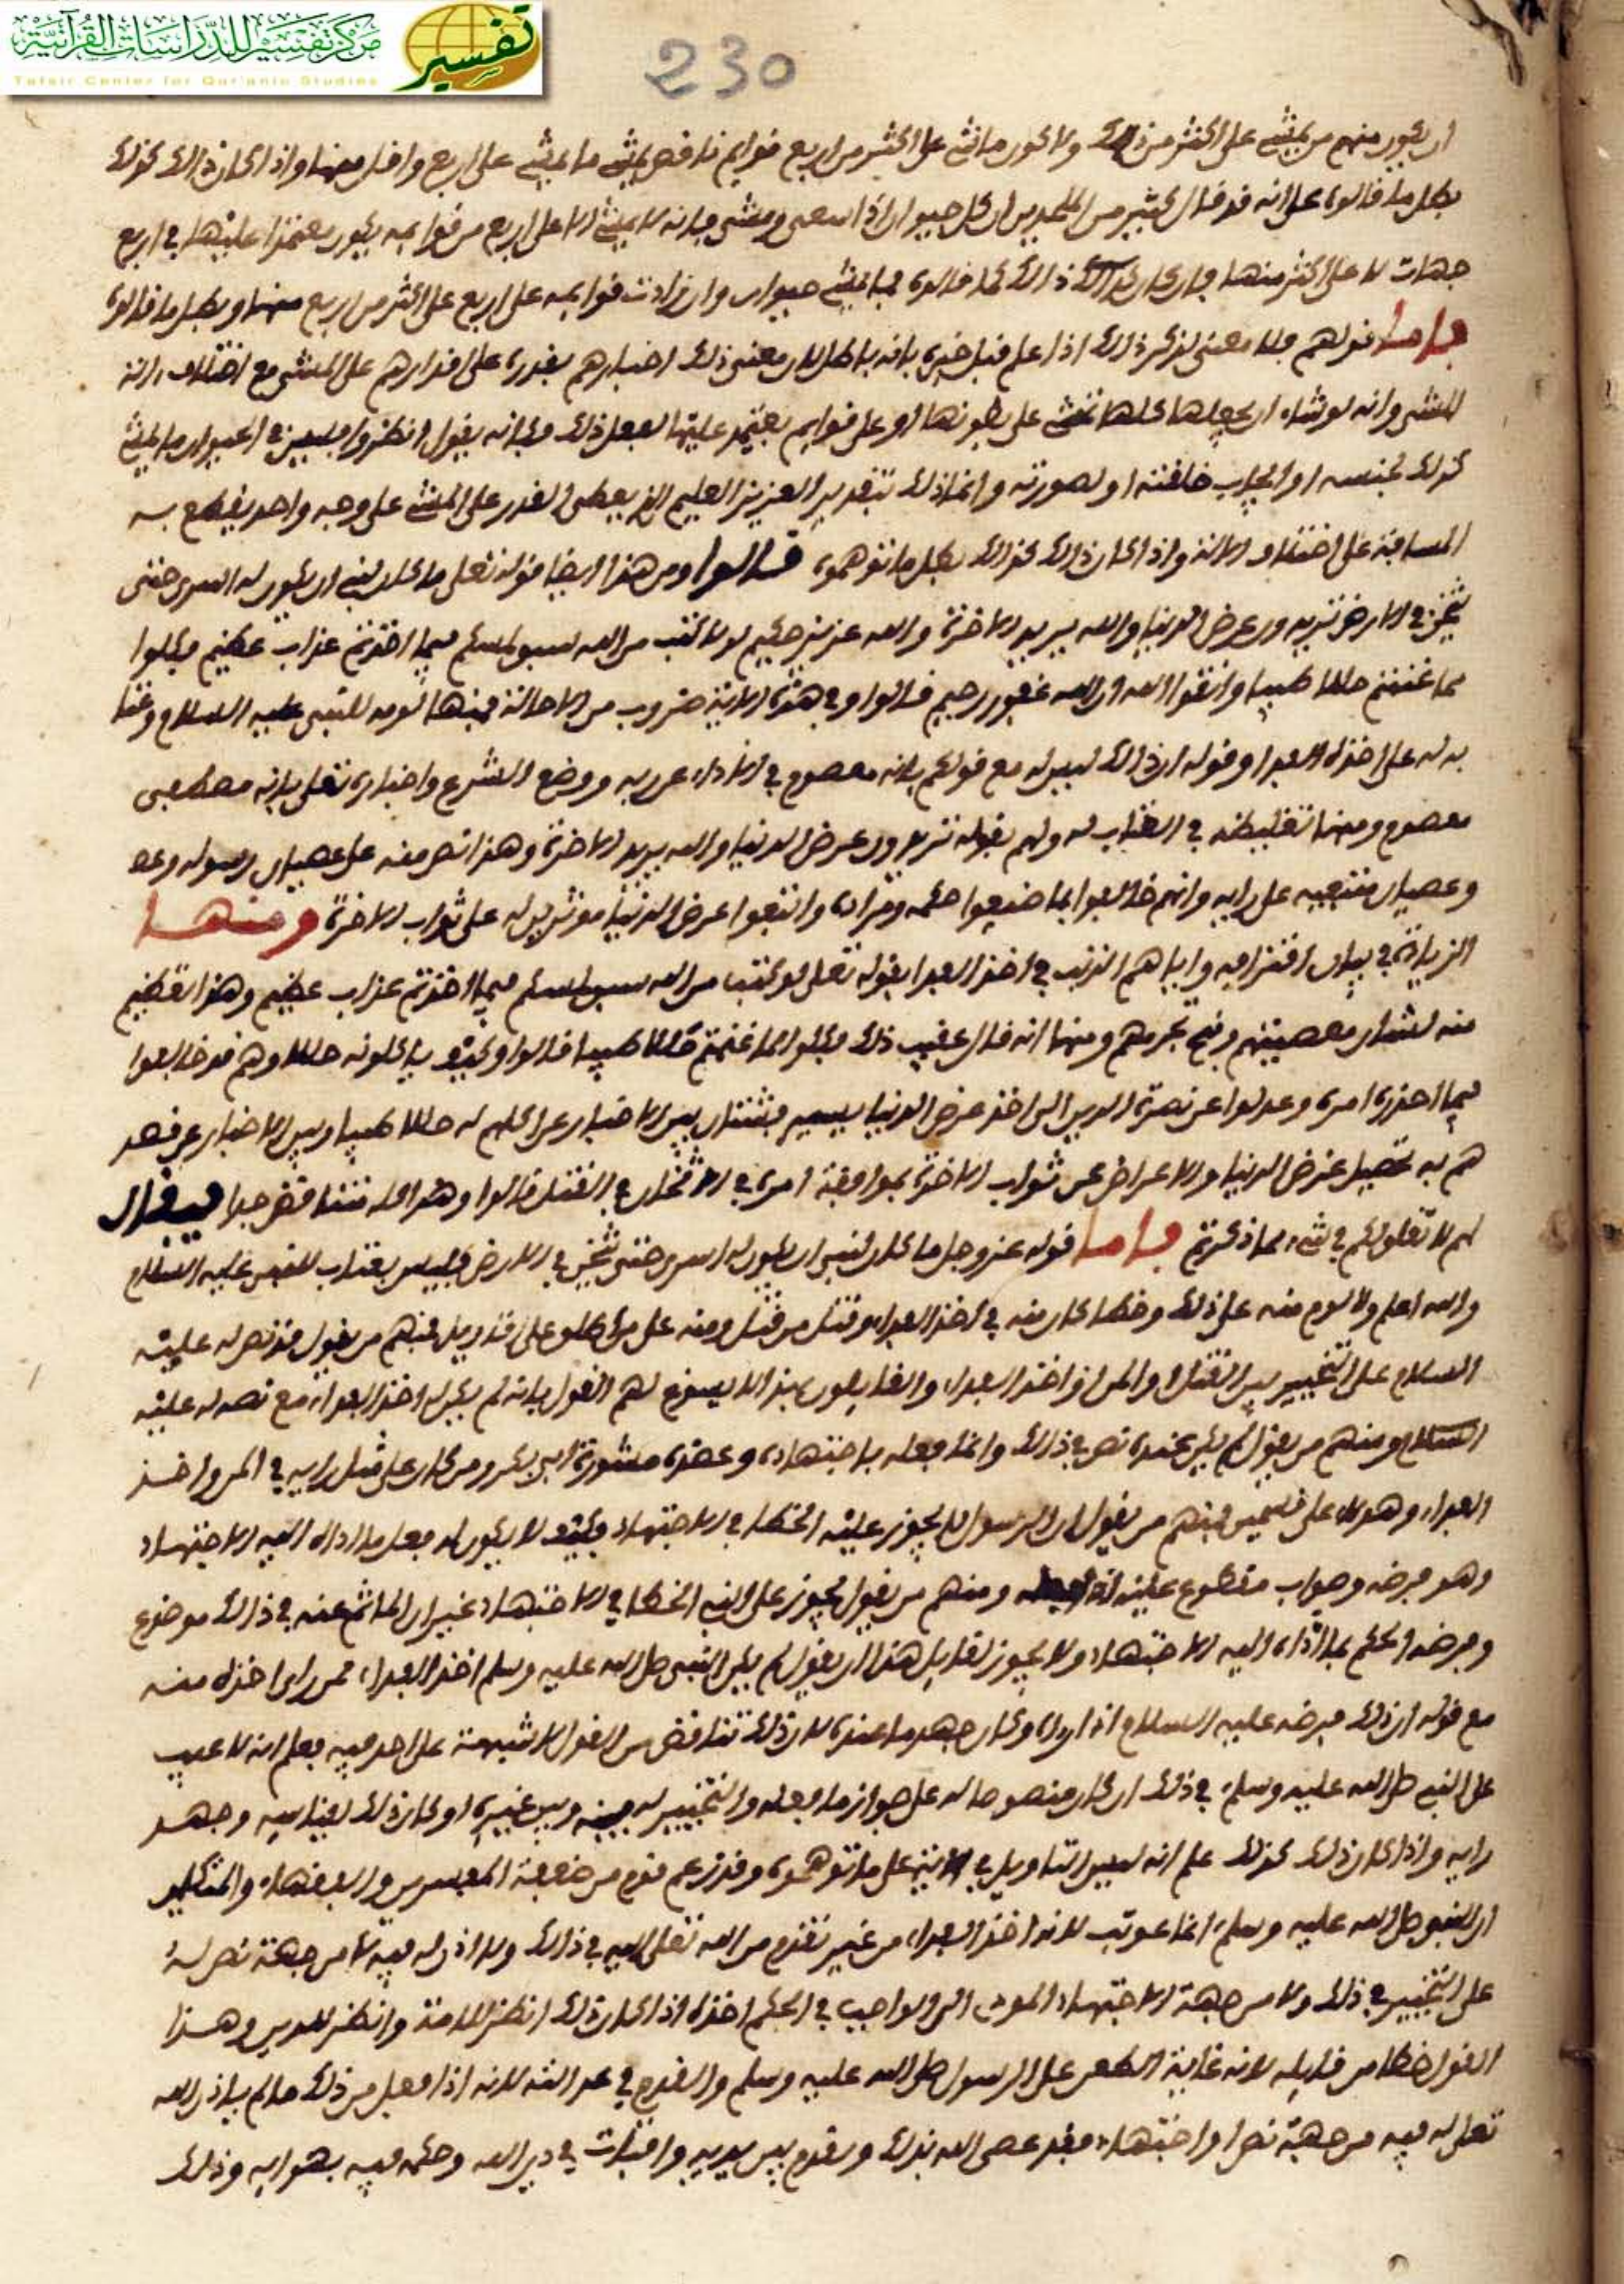 مركز تفسير للدراسات القرآنية
Tafsir Center for Qur'anic Studies
تفسير
230
ان يكون منهم من يمشي على اكثر من ذلك ولا يكون ما مشى على اكثر من اربع قوايم ناقص يمشي ما يمشي على اربع واقل منها واذا كان ذالك كذلك
بطل ما قالوه على انه قد قال كثير من الملحدين ان كل حيوان اذا سعى ومشى فانه لا يمشي الا على اربع من قوايمه يكون معتمدا عليها في اربع
جهات لا على اكثر منها فان كان ذالك كما قالوه فما يمشي حيوان وان زادت قوايمه على اربع على اكثر من اربع منها وبطل ما قالوه
فاما قولهم فلا معنى لذكر ذلك اذا علم قبل خبره بانه باطل لان معنى ذلك اخبارهم بقدرته على اقدارهم على المشي مع اختلاف الة
المشي وانه لو شاء ان يجعلها كلها تمشي على بطونها او على قوايم يعتمد عليها لفعل ذلك فكانه يقول انظروا فليس في الحيوان ما يمشي
كذلك لجنسه او ايجاب خلقته او لصورته وانما ذلك بتقدير العزيز العليم الذي يعطى القدر على المشي على وجه واحد يقطع به
المسافة على اختلاف الالة واذا كان ذالك كذالك بطل ما توهموه قالوا ومن هذا ايضا قوله تعلى ما كان لنبي ان يكون له اسرى حتى
يثخن في الارض تريدون عرض الدنيا والله يريد الاخرة والله عزيز حكيم لولا كتب من الله سبق لمسكم فيما اخذتم عذاب عظيم فكلوا
مما غنمتم حللا طيبا واتقوا الله ان الله غفور رحيم قالوا وفي هذه الاية ضروب من الاحالة فمنها لومه للنبي عليه السلام
به له على اخذه الفدا وقوله ان ذالك ليس له مع قولكم بانه معصوم في الاداء عن ربه ووضع الشرع واخباره تعلى بانه مصطفى
معصوم ومنها تغليظه في العتاب له ولهم بقوله تريدون عرض الدنيا والله يريد الاخرة وهذا نص منه على عصيان رسوله
وعصيان متبعيه على رايه وانهم خالفوا بما صنعوا حكمه ومراده واتبعوا عرض الدنيا موثرين له على ثواب الاخرة ومنها
الزيادة في بيان اقترافه واياهم الذنب في اخذ الفدا بقوله تعلى لولا كتب من الله سبق لمسكم فيما اخذتم عذاب عظيم وهذا تعظيم
منه لشان معصيتهم وقبح جرمهم ومنها انه قال عقيب ذلك فكلوا مما غنمتم حللا طيبا قالوا وكيف ياكلونه حللا وهم قد خالفوا
فيما اخذوه امره وعدلوا عن نصرة الدين الى اخذ عرض الدنيا يسير فشتان بين الاخبار عن اكلهم له حللا طيبا وبين الاخبار عن قصد
هم به تحصيل عرض الدنيا والاعراض عن ثواب الاخرة بموافقة امره في الاثخان في القتل قالوا وهذا كله متناقض جدا فيقال
لهم لا تعلق لكم في شيء مما ذكرتم فاما قوله عز وجل ما كان لنبي ان يكون له اسرى حتى يثخن في الارض فليس بعتاب للنبي عليه السلام
والله اعلم ولا لوم منه على ذلك وخطا كان منه في اخذ الفداء وقتل من قتل ومنه على من اطلق على تاويل فمنهم من يقول قد نص له عليه
السلام على التخيير بين القتل والمن او اخذ الفداء والقايلون بهذا لا يسوغ لهم القول بانه لم يكن له اخذ الفداء مع نصه له عليه
السلام ومنهم من يقول لم يكن عنده نص في ذلك وانما فعله باجتهاده وعضده مشورة ابي بكر ومن كان على مثل رايه في المن واخذ
الفداء وهولاء على قسمين فمنهم من يقول ان الرسول لا يجوز عليه الخطا في الاجتهاد فكيف لا يكون له فعل ما اداه اليه الاجتهاد
وهو فرضه وصواب مقطوع عليه ومنهم من يقول يجوز على النبي الخطا في الاجتهاد غير ان الماثم عنه في ذالك موضوع
وفرضه الحكم بما اداه اليه الاجتهاد ولا يجوز لقايل هذا ان يقول لم يكن للنبي صلى الله عليه وسلم اخذ الفداء ممن راى اخذه منه
مع قوله ان ذلك فرضه عليه السلام اذا راه وكان جهد ما عنده لان ذلك تناقض من القول لا شبهة على احد فيه فعلم انه لا عيب
على النبي صلى الله عليه وسلم في ذلك ان كان منصوصا له على جواز ما فعله والتخيير له بينه وبين غيره او كان ذلك بقياسه وجهد
رايه واذا كان ذلك كذلك علم انه ليس التاويل في الاية على ما توهموه وقد زعم قوم من ضعفة المفسرين والفقهاء والمتكلمين
ان النبي صلى الله عليه وسلم انما عوتب لانه اخذ الفداء من غير تقدم من الله تعلى اليه في ذالك ولا اذن له فيه لا من جهة نص له
على التخيير في ذلك ولا من جهة الاجتهاد المودى الى الواجب في الحكم اخذه اذا كان ذلك انظر للامة وانظر للدين وهذا
القول خطا من قايله لانه غاية الطعن على الرسول صلى الله عليه وسلم والقدح في عدالته لانه اذا فعل من ذلك ما لم ياذن الله
تعلى له فيه من جهة نص او اجتهاد فقد عصى الله بذلك وتقدم بين يديه وافتات في دين الله وحكم فيه بهوايه وذلك